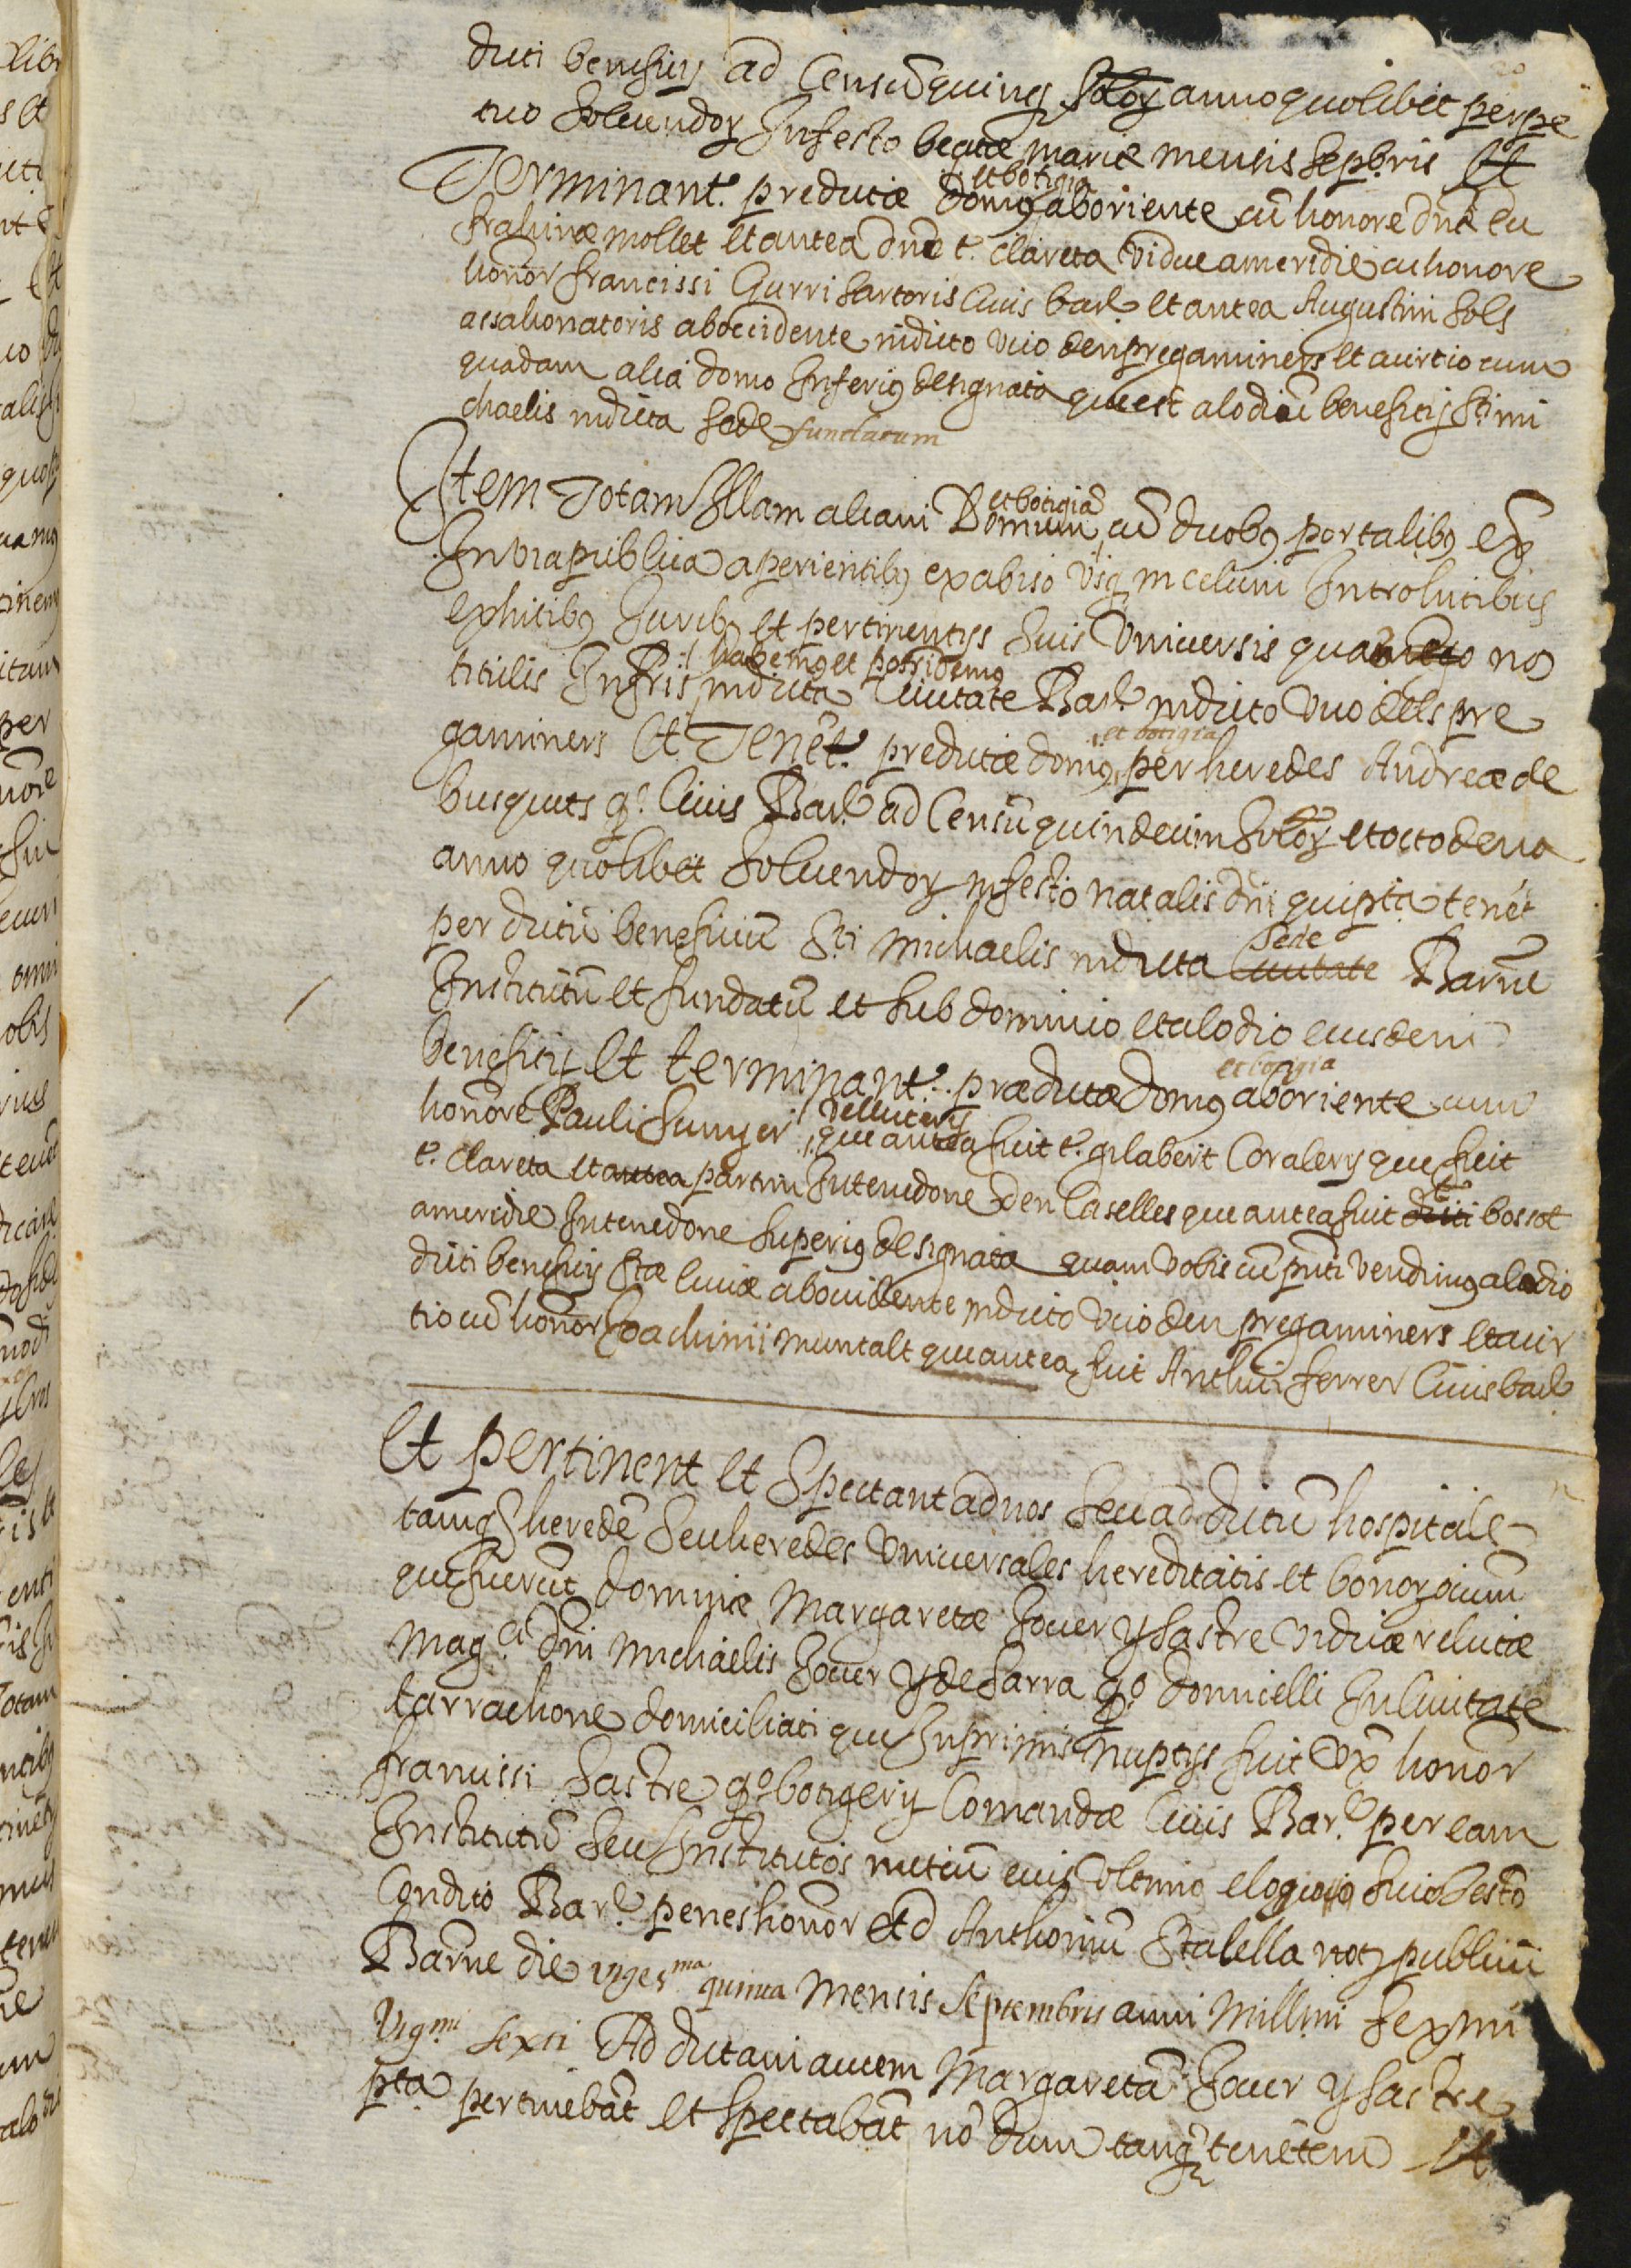 dicti beneficij ad Censũ quinq; solox anno quolibet perpe
tuo Soluendox In festo beatæ mariæ mensis Sepbris Et
Terminant.r predictæ domus et botigia ab oriente cũ honore dnæ Eu
fralinæ mollet et antea dnæ t. clareta Vidue a meridie cu honore
honor francissi Gurri Sartoris Ciuis bar.e et antea Augustini Sols
assahonatoris ab occidente in dicto vico den pregaminers et a circio cum
quadam alia domo Inferius designata que est alodiũ beneficij Sti mi
chaelis in dicta Sede fundatum
Item Totam Illam aliam Domum et botigiã cũ duobus portalibus &
In via publica aperientibus ex abiso vsq; in celum Introhitibus
exhitibus Juribus et pertinentijs Suis Vniuersis quam ego nos
titulis Infris habemus et possidemus in dicta Ciuitate Bar.e in dicto vico dels pre
gaminers Et Tenẽt.r predictæ domus et botigia per heredes Andreæ de
busquets q.o Ciuis Bar.e ad Censũ quindecim Solox et octo deno
anno quolibet Soluendox in festo natalis dni qui pta tenẽt
per dictũ beneficiũ Sti Michaelis in dicta Ciuitate Sede Barne
Institutũ et fundatũ et Sub dominio et alodio eiusdem
beneficij Et terminant.r prædictæ domus et botigia ab oriente cum
honore Pauli Sunyer velluterij que antea fuit t. gilabert Coralerij que fuit
t. Clareta et antea partim In tenedone den Caselles que antea fuit dicti t. bossot
a meridie In tenedone Superius designata quam vobis cũ pnti vendimus alodio
dicti beneficij Stæ Luciæ ab occidente in dicto vico den pregaminers et a cir
tio cũ honor Joachimi muntalt que antea fuit Anthici ferrer Ciuis bar.e
Et pertinent et Spectant ad nos Seu ad dictũ hospitale
tanq; heredẽ Seu heredes Vniuersales hereditatis et bonox oium
que fuerũt dominæ Margaretæ Jouer y Sastre viduæ relictæ
Mag.ci dni Michaelis Jouer y de Sarra q.o domicelli In Ciuitate
tarrachone domiciliati que In primis nuptijs fuit Vx.r honor
francissi Sastre q.o botigerij Comandæ Ciuis Bar.e per eam
Institutũ Seu Institutos mitiũ cuius Vltimo elogio Suio testo
Condito Bar.e penes honor et d Anthoniũ Estalella not publicũ
Barne die viges.ma quinta mensis Septembris anni Millmi Sexmi
Vig.mi Sexti Ad dictam autem Margaretã Jouer y Sastre
pta pertinebãt et Spectabãt nõ dum tanq; tenẽtem Et